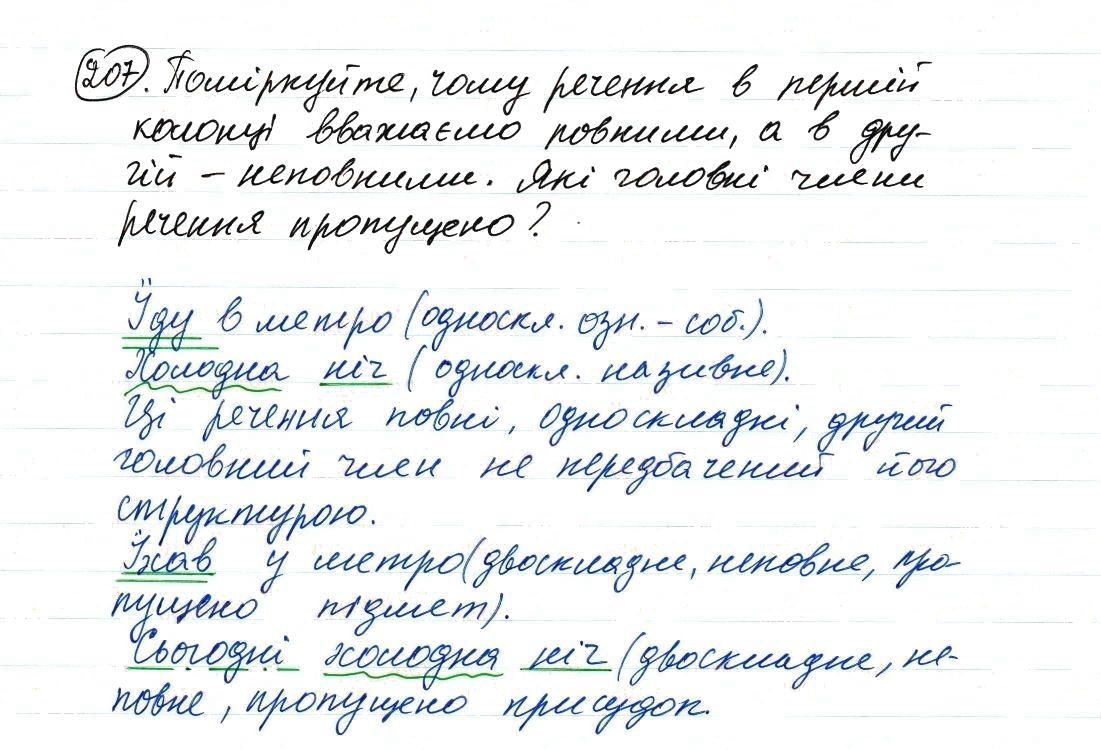 207. Поміркуйте, чому речення в першій
колонці вважаємо повними, а в дру-
гій – неповними. Які головні члени
речення пропущено?
Їду в метро (односкл. озн. – соб.).
Холодна ніч (односкл. називне).
Ці речення повні, односкладні, другий
головний член не передбачений його
структурою.
Їхав у метро (двоскладне, неповне, про-
пущено підмет).
Сьогодні холодна ніч (двоскладне, не-
повне, пропущено присудок.